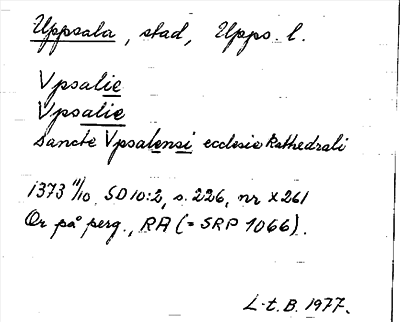 Uppsala, stad, Upps. l.
Vpsalie
Vpsalie
Sancte Vpsalensi ecclesie Kathedrali
1373 11/10, SD 10:2, s. 226, nr X 261
Or på perg., RA (= SRP 1066).
L-t. B. 1977.